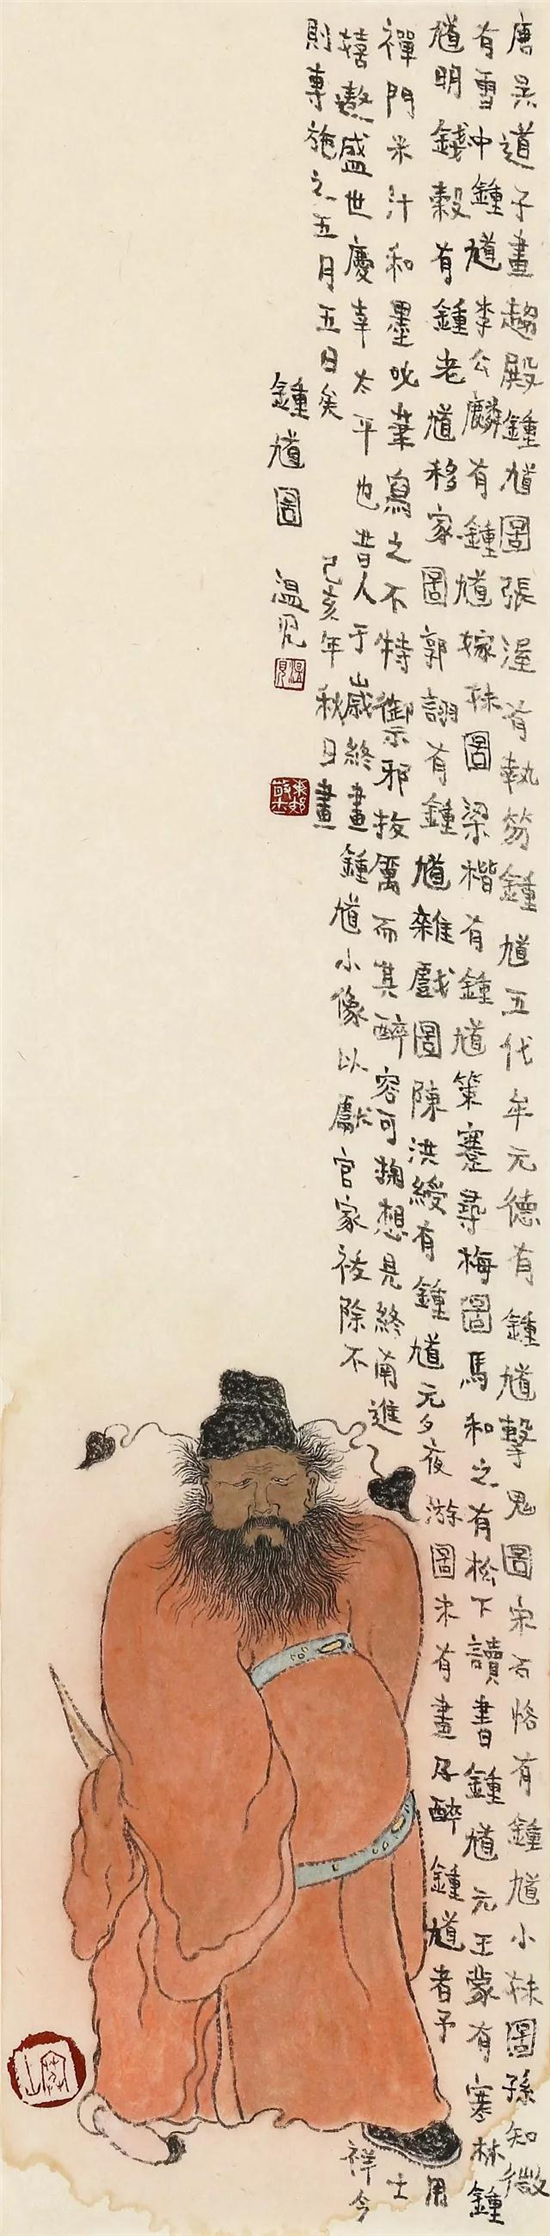 唐吳道子畫趨殿鍾馗圖張渥有執笏鍾馗五代牟元德有鍾馗擊鬼圖宋石恪有鍾馗小妹圖孫知微
有雪中鍾馗李公麟有鍾馗嫁妹圖梁楷有鍾馗策蹇尋梅圖馬和之有松下讀書鍾馗元王蒙有寒林鍾
馗明錢穀有鍾老馗移家圖郭詡有鍾馗雜戲圖陳洪綬有鍾馗元夕夜游圖未有畫及醉鍾馗者予用
禪門米汁和墨吮筆寫之不特御邪抜厲而其醉容可掬想見終南進士
嬉遨盛世慶幸太平也昔人于歲終畫鍾馗小像以獻官家祓除不祥今
則專施之五月五日矣
己亥年秋日畫
鍾馗圖
溫